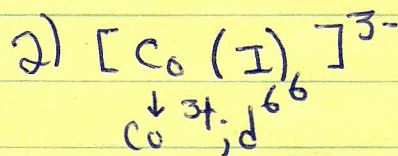 2) [Co(I)₆]³⁻
↓
Co³⁺; d⁶